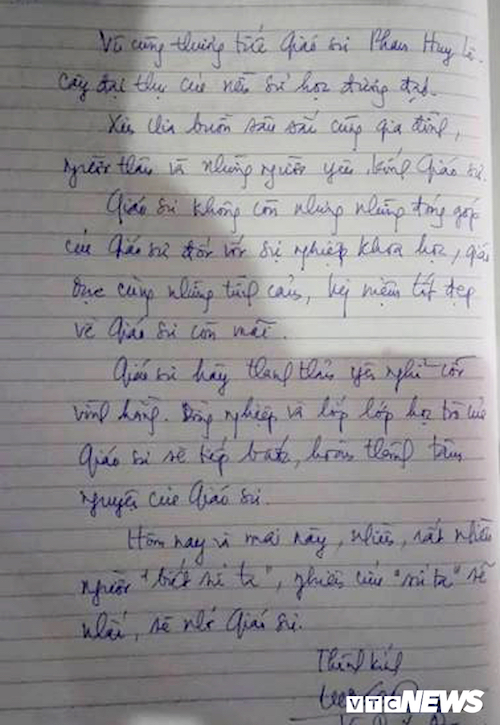 Vô cùng thương tiếc Giáo sư Phan Huy Lê -
cây đại thụ của nền sử học đương đại.
Xin chia buồn sâu sắc cùng gia đình,
người thân và những người yêu kính Giáo sư.
Giáo sư không còn nhưng những đóng góp
của Giáo sư đối với sự nghiệp khoa học, giáo
dục cùng những tình cảm, kỷ niệm tốt đẹp
về Giáo sư còn mãi.
Giáo sư hãy thanh thản yên nghỉ cõi
vĩnh hằng. Đồng nghiệp và lớp lớp học trò của
Giáo sư sẽ tiếp bước, hoàn thành tâm
nguyện của Giáo sư.
Hôm nay và mai này, nhiều, rất nhiều
người "biết sử ta", nghiên cứu "sử ta" sẽ
nhắc, sẽ nhớ Giáo sư.
Thành kính
VTC NEWS